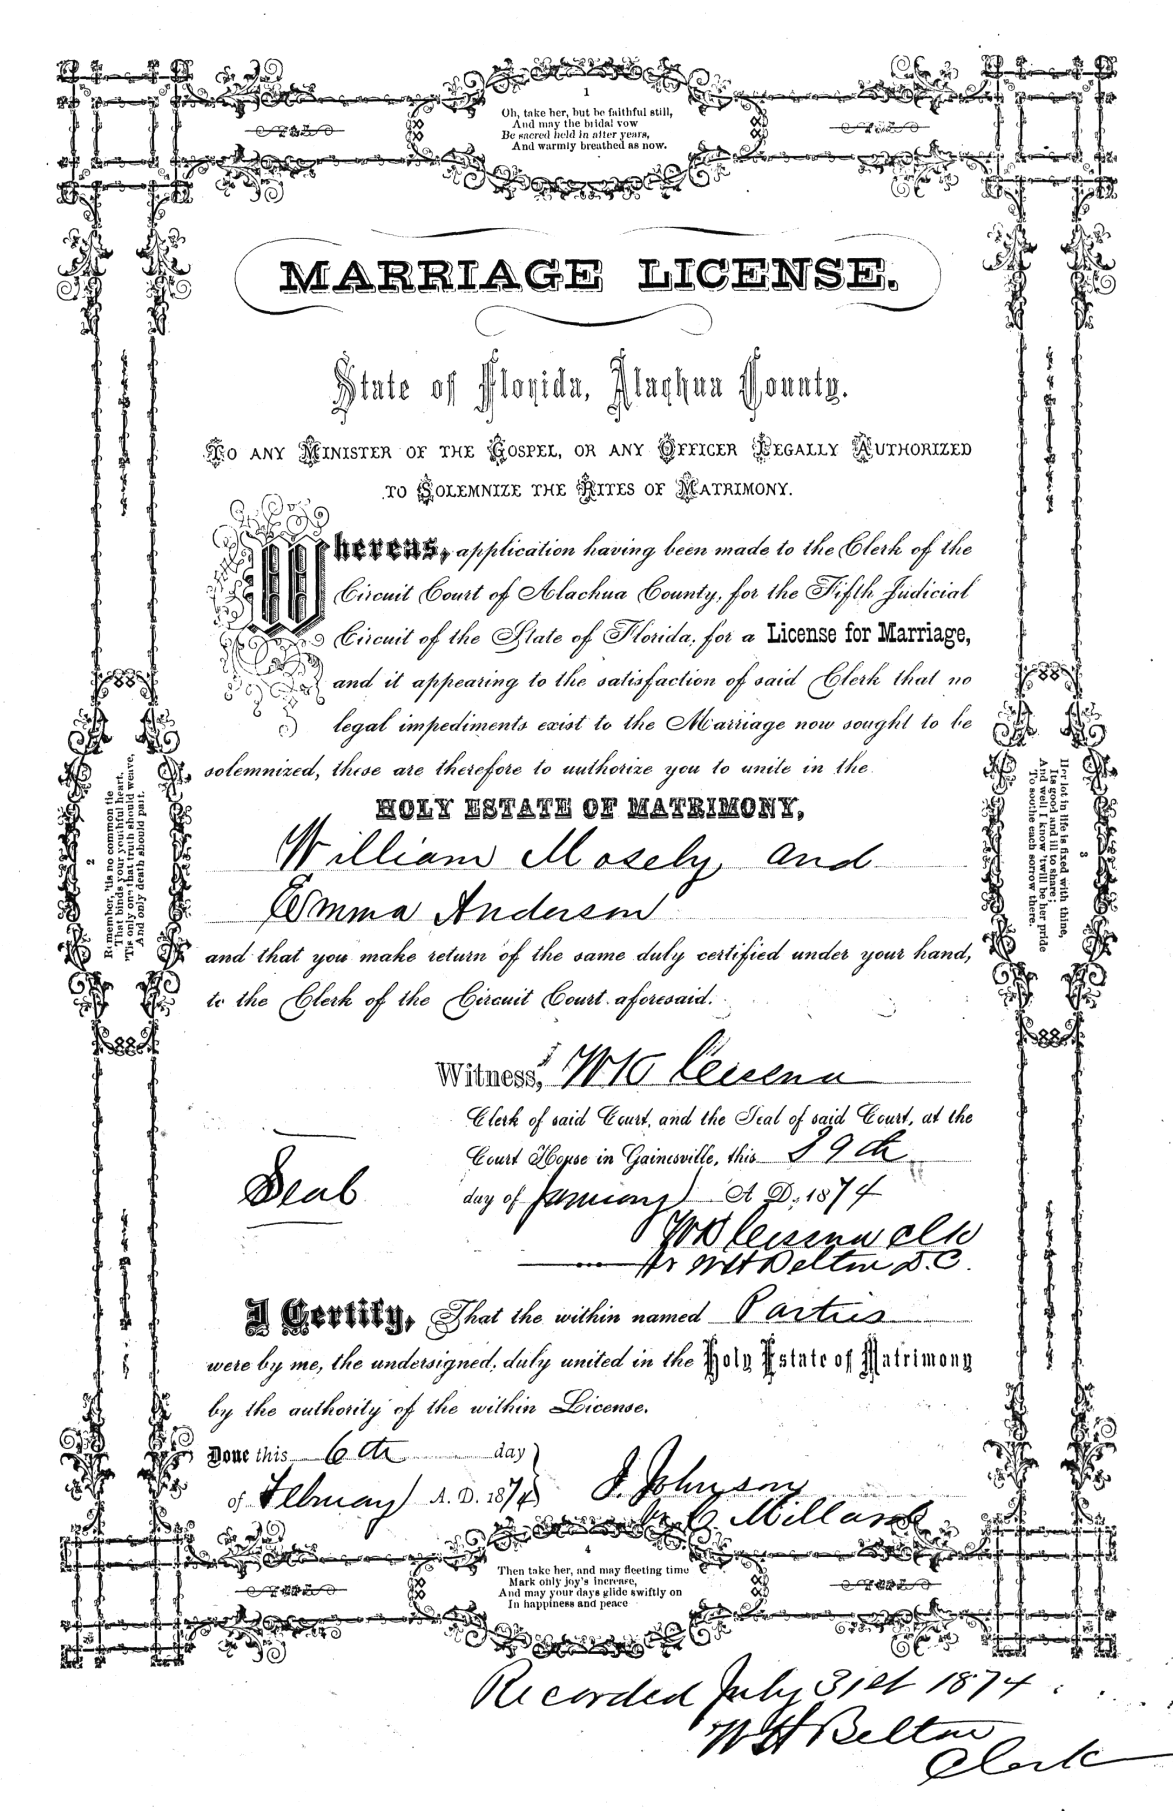 1
Oh, take her, but be faithful still,
And may the bridal vow
Be sacred held in after years,
And warmly breathed as now.
MARRIAGE LICENSE.
State of Florida, Alachua County.
TO ANY MINISTER OF THE GOSPEL, OR ANY OFFICER LEGALLY AUTHORIZED
TO SOLEMNIZE THE RITES OF MATRIMONY.
Whereas, application having been made to the Clerk of the
Circuit Court of Alachua County, for the Fifth Judicial
Circuit of the State of Florida, for a License for Marriage,
and it appearing to the satisfaction of said Clerk that no
legal impediments exist to the Marriage now sought to be
solemnized, these are therefore to authorize you to unite in the
HOLY ESTATE OF MATRIMONY,
William Mosely and
Emma Anderson
and that you make return of the same duly certified under your hand,
to the Clerk of the Circuit Court aforesaid.
Witness, WK Cessna
Clerk of said Court, and the Seal of said Court, at the
Court House in Gainesville, this 29th
Seal
day of January A D, 1874
WK Cessna Clk
pr WH Belton D.C.
I Certify, That the within named Parties
were by me, the undersigned, duly united in the Holy Estate of Matrimony
by the authority of the within License.
Done this 6th day
of February A. D. 1874
J. Johnson
2
Remember, 'tis no common tie
That binds your youthful heart,
'Tis only one that truth should weave,
And only death should part.
3
Her lot in life is fixed with thine,
Its good and ill to share;
And well I know 'twill be her pride
To soothe each sorrow there.
4
Then take her, and may fleeting time
Mark only joy's increase,
And may your days glide swiftly on
In happiness and peace
Recorded July 31st 1874
WH Belton
Clerk